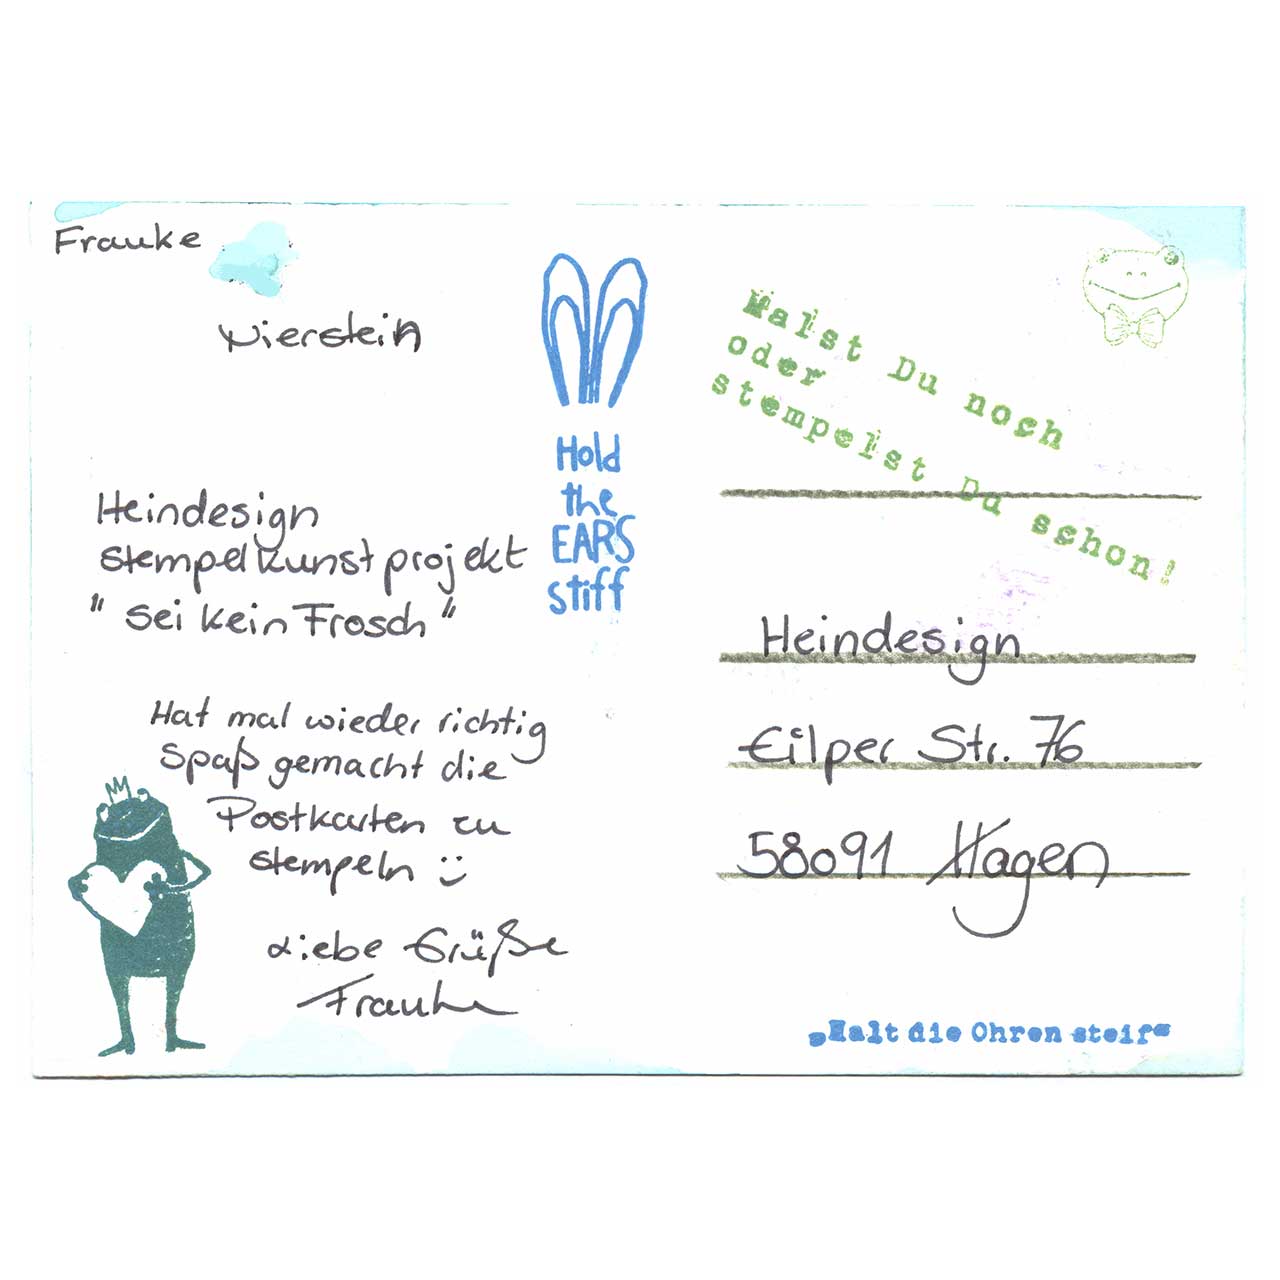 Frauke
Nierstein
Heindesign
Stempelkunstprojekt
"Sei kein Frosch"
Hat mal wieder richtig
Spaß gemacht die
Postkarten zu
stempeln :)
Liebe Grüße
Frauke
Hold
the
EARS
stiff
Malst Du noch
oder
stempelst Du schon!
Heindesign
Eilper Str. 76
58091 Hagen
„Halt die Ohren steif“